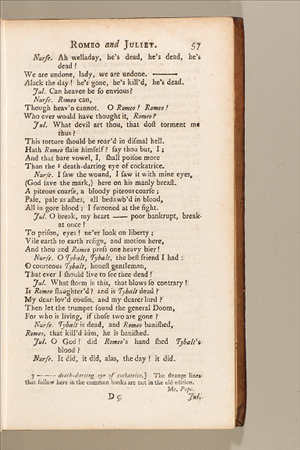 ROMEO and JULIET. 57
Nurſe. Ah welladay, he's dead, he's dead, he's
dead!
We are undone, lady, we are undone. ———
Alack the day! he's gone, he's kill'd, he's dead.
Jul. Can heaven be ſo envious?
Nurſe. Romeo can,
Though heav'n cannot. O Romeo! Romeo!
Who ever would have thought it, Romeo?
Jul. What devil art thou, that doſt torment me
thus?
This torture ſhould be roar'd in diſmal hell.
Hath Romeo ſlain himſelf? ſay thou but, I;
And that bare vowel, I, ſhall poiſon more
Than the 3 death-darting eye of cockatrice.
Nurſe. I ſaw the wound, I ſaw it with mine eyes,
(God ſave the mark,) here on his manly breaſt.
A piteous coarſe, a bloody piteous coarſe;
Pale, pale as aſhes, all bedawb'd in blood,
All in gore blood; I ſwooned at the ſight.
Jul. O break, my heart —— poor bankrupt, break
at once!
To priſon, eyes! ne'er look on liberty;
Vile earth to earth reſign, and motion here,
And thou and Romeo preſs one heavy bier!
Nurſe. O Tybalt, Tybalt, the beſt friend I had:
O courteous Tybalt, honeſt gentleman,
That ever I ſhould live to ſee thee dead!
Jul. What ſtorm is this, that blows ſo contrary!
Is Romeo ſlaughter'd? and is Tybalt dead?
My dear-lov'd couſin, and my dearer lord?
Then let the trumpet ſound the general Doom,
For who is living, if thoſe two are gone?
Nurſe. Tybalt is dead, and Romeo baniſhed,
Romeo, that kill'd him, he is baniſhed.
Jul. O God! did Romeo's hand ſhed Tybalt's
blood?
Nurſe. It did, it did, alas, the day! it did.
3 – – – – death-darting eye of cockatrice.] The ſtrange lines
that follow here in the common books are not in the old edition.
Mr. Pope.
D 5 Jul.